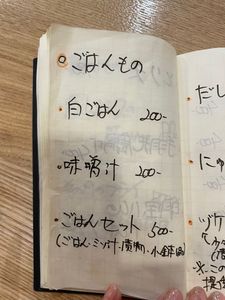 ごはんもの
白ごはん 200-
味噌汁 200-
ごはんセット 500-
(ごはん・ミソ汁・漬物・小鉢
だし
にゅ